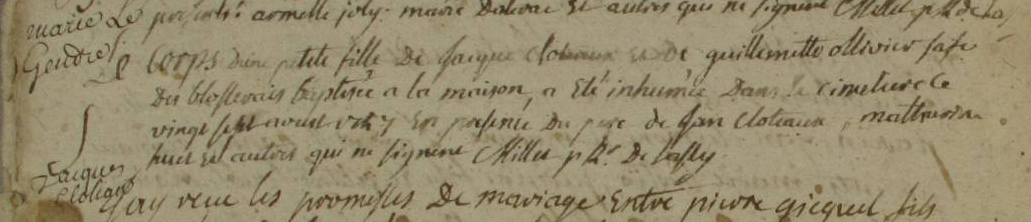 marie Le presents: armelle joly. marie et autres qui ne signent Millet p.tr de
Gendre Le Corps d'une petite fille De Jacque Cloteaux et De guillemette ollivier sa fe
Des blosserais baptisée a la maison, a eté inhumée Dans le cimetiere ce
vingt sept avril en presence Du pere de Jan Cloteaux,
huet et autres qui ne signent Millet p.tr De
Jacques
Cloteaux
J'ay veue les promesses De mariage Entre pierre gicquel fils